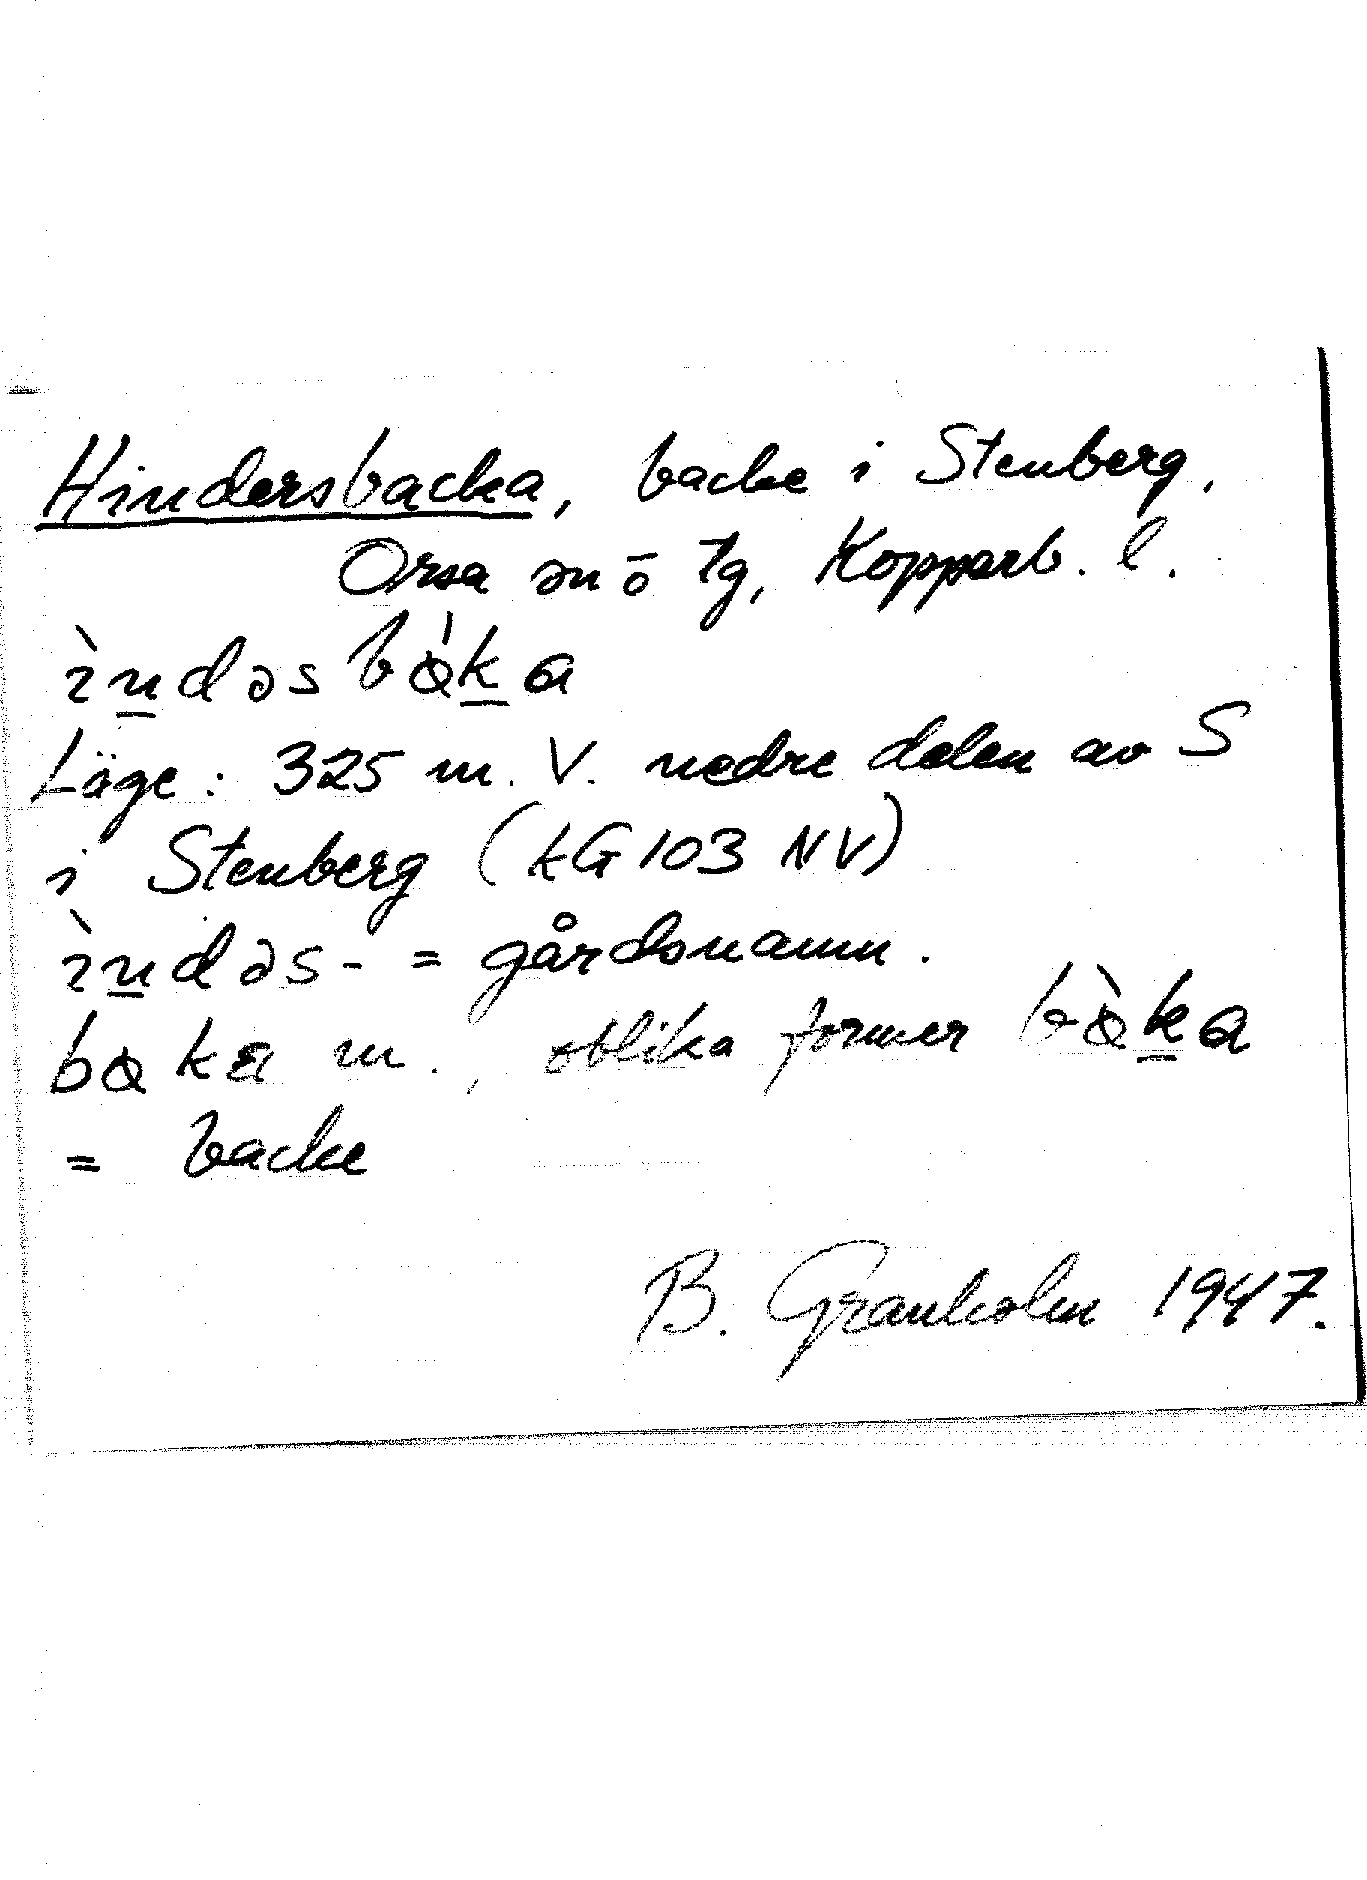 Hindersbacka, backe i Stenberg,
Orsa sn ō tg, Kopparb. l.
ìn̲dəs bàk̲a
Läge: 325 m. V. nedre delen av S
i Stenberg (kG 103 NV)
ìn̲dəs- = gårdsnamn.
baka m., oblika former bàk̲a
= backe
B. Granholm 1947.